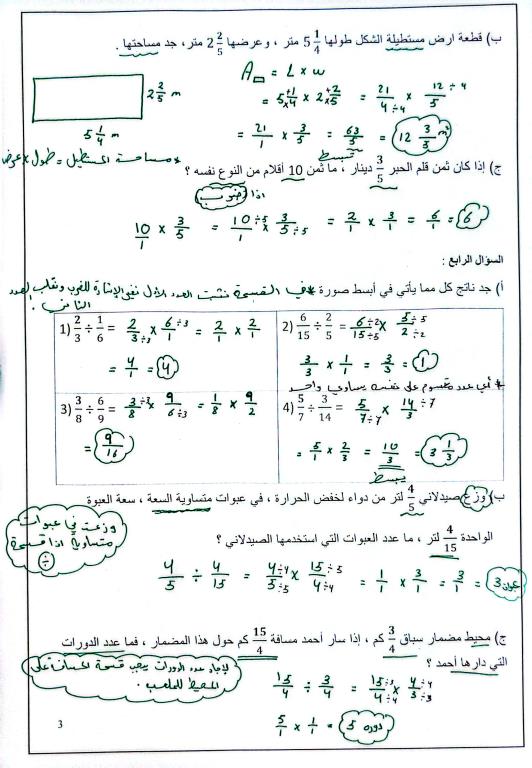 ب) قطعة ارض مستطيلة الشكل طولها 5 1/4 متر ، وعرضها 2 2/5 متر، جد مساحتها .
A▭ = L × w
2 2/5 m
= 5 1/4 × 2 2/5 = 21/4÷4 × 12÷4/5
5 1/4 m
= 21/1 × 3/5 = 63/5 = 12 3/5 m²
تبسط
* مساحة المستطيل = طول × عرض
ج) إذا كان ثمن قلم الحبر 3/5 دينار ، ما ثمن 10 أقلام من النوع نفسه ؟
اذا ضرب
10/1 × 3/5 = 10÷5/1 × 3/5÷5 = 2/1 × 3/1 = 6/1 = 6
السؤال الرابع :
أ) جد ناتج كل مما يأتي في أبسط صورة * في القسمة نثبت العدد الأول نغير الإشارة للضرب ونقلب العدد
الثاني .
1) 2/3 ÷ 1/6 = 2/3÷3 × 6÷3/1 = 2/1 × 2/1
= 4/1 = 4
2) 6/15 ÷ 2/5 = 6÷2/15÷5 × 5÷5/2÷2
3/3 × 1/1 = 3/3 = 1
* أي عدد مقسوم على نفسه يساوي واحد
3) 3/8 ÷ 6/9 = 3÷3/8 × 9/6÷3 = 1/8 × 9/2
= 9/16
4) 5/7 ÷ 3/14 = 5/7÷7 × 14÷7/3
= 5/1 × 2/3 = 10/3 = 3 1/3
تبسط
ب) وزع صيدلاني 4/5 لتر من دواء لخفض الحرارة ، في عبوات متساوية السعة ، سعة العبوة
الواحدة 4/15 لتر ، ما عدد العبوات التي استخدمها الصيدلاني ؟
وزعت في عبوات
متساوية اذا قسمة
÷
4/5 ÷ 4/15 = 4÷4/5÷5 × 15÷5/4÷4 = 1/1 × 3/1 = 3/1 = 3 عبوات
ج) محيط مضمار سباق 3/4 كم ، إذا سار أحمد مسافة 15/4 كم حول هذا المضمار ، فما عدد الدورات
التي دارها أحمد ؟
لإيجاد عدد الدورات يجب قسمة المسافة على
المحيط للملعب .
15/4 ÷ 3/4 = 15÷3/4÷4 × 4÷4/3÷3
5/1 × 1/1 = 5 دورة
3